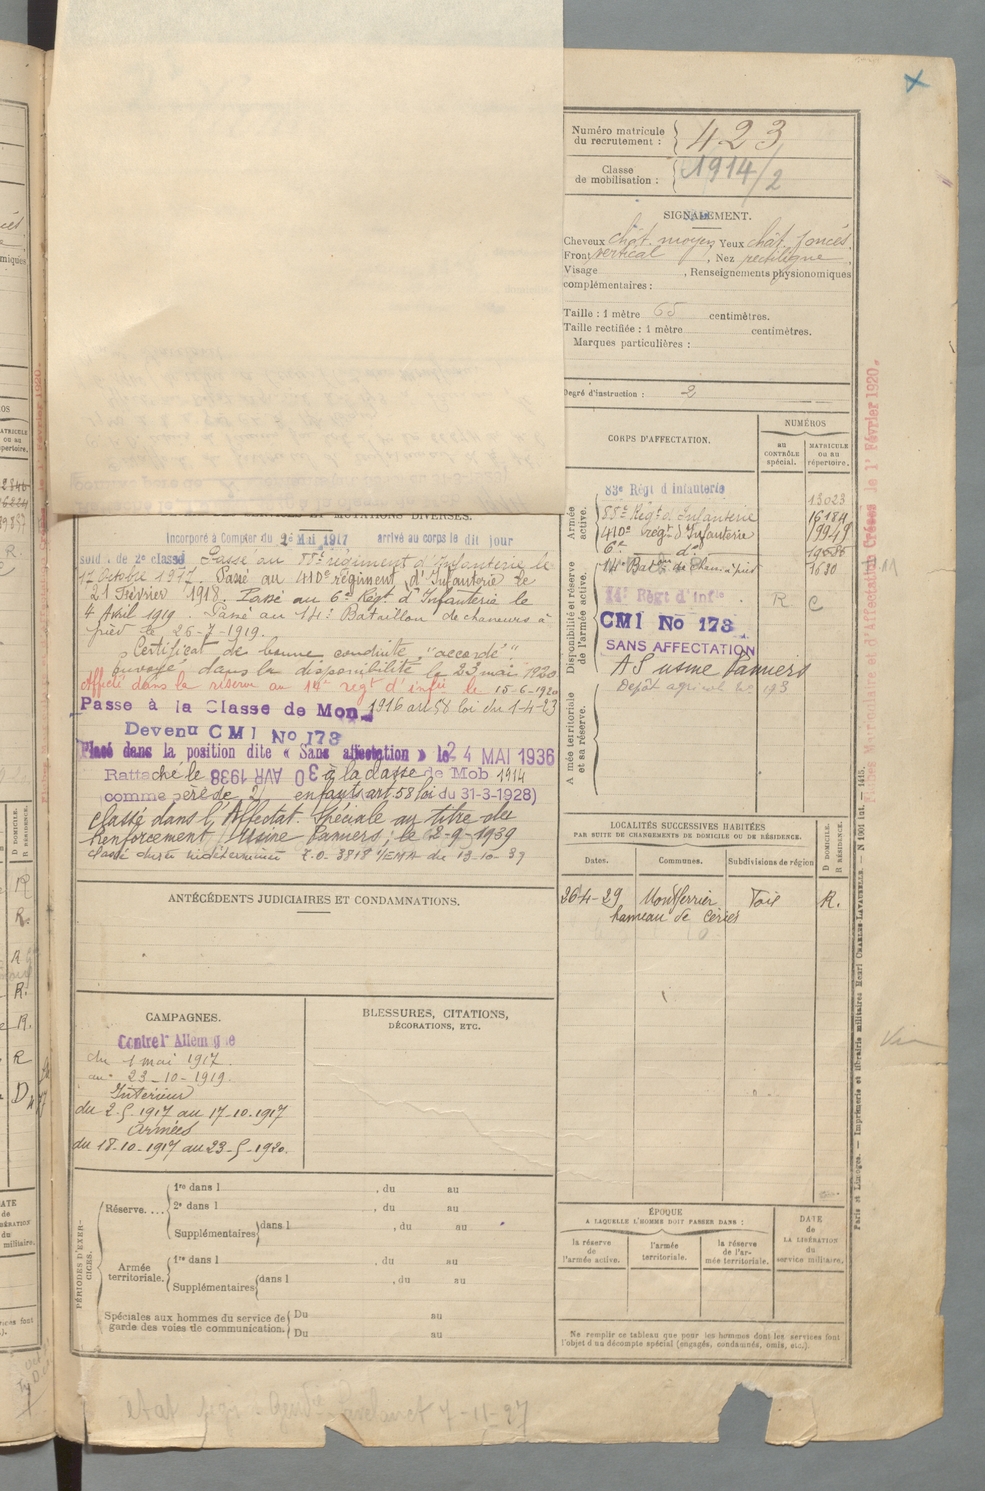 Numéro matricule
du recrutement : 423
Classe
de mobilisation : 1914/2
SIGNALEMENT.
Cheveux chât. moyen, Yeux chât. foncés.
Front vertical, Nez rectiligne.
Visage , Renseignements physionomiques
complémentaires :
Taille : 1 mètre 65 centimètres.
Taille rectifiée : 1 mètre centimètres.
Marques particulières :
Degré d'instruction : 2
CORPS D'AFFECTATION.
NUMÉROS
au
CONTRÔLE
spécial.
MATRICULE
ou au
répertoire.
Armée
active.
83e Régt d'infanterie 13023
Régt d'Infanterie 16184
410e régt d'Infanterie 19949
6e do
14e Bat. de Chan. à pied 1630
Disponibilité et réserve
de l'armée active.
14e Régt d'infie R C
CMI No 173
SANS AFFECTATION
AS usine Pamiers
Dépôt agricole No 173
Armée territoriale
et sa réserve.
ET MUTATIONS DIVERSES.
Incorporé à Compter du 2 Mai 1917 arrivé au corps le dit jour
sold. de 2e classe Passé au régiment d'infanterie le
17 Octobre 1917. Passé au 410e régiment d'Infanterie le
21 Février 1918. Passé au 6e Régt d'Infanterie le
4 Avril 1919. Passé au 14e Bataillon de chasseurs à
pied le 26-7-1919.
Certificat de bonne conduite "accordé"
Envoyé dans la disponibilité le 23 mai 1920
Affecté dans la réserve au 14e régt d'infie le 15-6-1920
Passe à la Classe de Mon. 1916 art 58 loi du 1-4-23
Devenu CMI No 173
Placé dans la position dite « Sans affectation » le 24 MAI 1936
Rattaché le 30 AVR 1938 à la classe de Mob 1914
(comme père de 2 enfants art. 58 loi du 31-3-1928)
Classé dans l'Affectat. Spéciale au titre des
Renforcement, Usine Pamiers, le 2-9-1939
classé durée indéterminée 3818 1/EMA du 13-10-39
ANTÉCÉDENTS JUDICIAIRES ET CONDAMNATIONS.
CAMPAGNES.
Contre l'Allemagne
du 1 mai 1917
au 23-10-1919.
Intérieur
du 2-5-1917 au 17-10-1917
Armées
du 18-10-1917 au 23-5-1920.
BLESSURES, CITATIONS,
DÉCORATIONS, ETC.
LOCALITÉS SUCCESSIVES HABITÉES
PAR SUITE DE CHANGEMENTS DE DOMICILE OU DE RÉSIDENCE.
D DOMICILE.
R RÉSIDENCE.
Dates. Communes. Subdivisions de région
26-4-29 Montferrier Foix R.
hameau de
PÉRIODES D'EXERCICES.
Réserve.... 1re dans l , du au
2e dans l , du au
Supplémentaires dans l , du au
Armée
territoriale. 1re dans l , du au
Supplémentaires dans l , du au
Spéciales aux hommes du service de
garde des voies de communication. Du au
Du au
ÉPOQUE
A LAQUELLE L'HOMME DOIT PASSER DANS :
la réserve
de
l'armée active.
l'armée
territoriale.
la réserve
de l'ar-
mée territoriale.
DATE
de
LA LIBÉRATION
du
service militaire.
Ne remplir ce tableau que pour les hommes dont les services font
l'objet d'un décompte spécial (engagés, condamnés, omis, etc.).
Paris et Limoges. — Imprimerie et librairie militaires Henri CHARLES-LAVAUZELLE.
Lavelanet 7-11-27